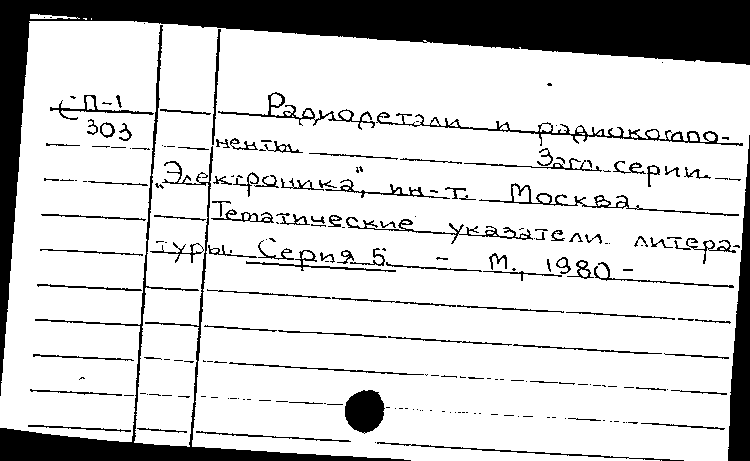 СП-1
303
Радиодетали и радиокомпо-
ненты. Загл. серии.
"Электроника", ин-т. Москва.
Тематические указатели литера-
туры. Серия 5. - М., 1980 -